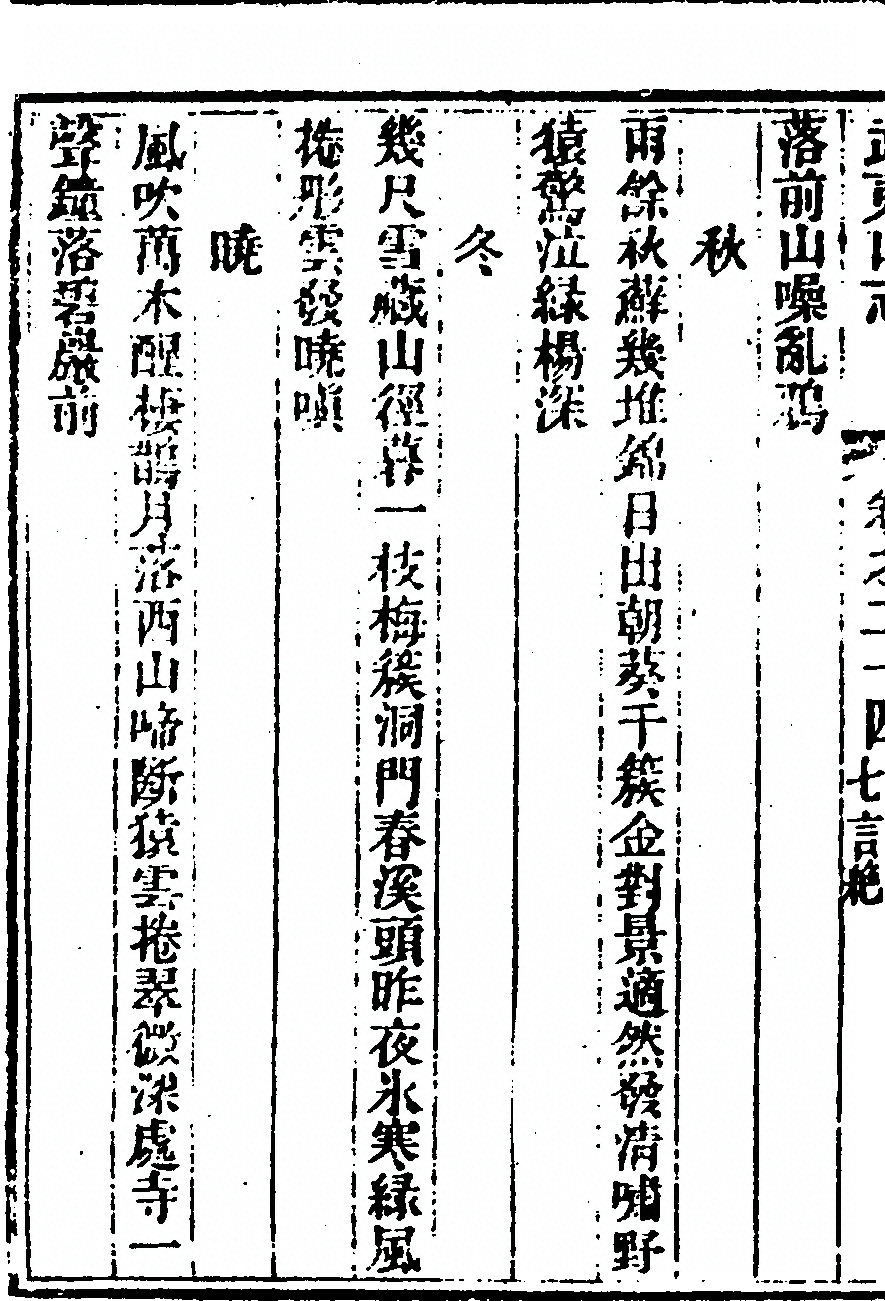 卷之二十四七言絕
落前山噪亂鴉
秋
雨餘秋蘚幾堆錦日出朝葵千簇金對景適然發清嘯野
猿驚泣綠楊深
冬
幾尺雪藏山徑暮一枝梅簇洞門春溪頭昨夜氷寒綠風
捲彤雲發曉嗔
曉
風吹萬木醒棲鵲月落西山啼斷猿雲捲翠微深處寺一
聲鐘落碧巖前